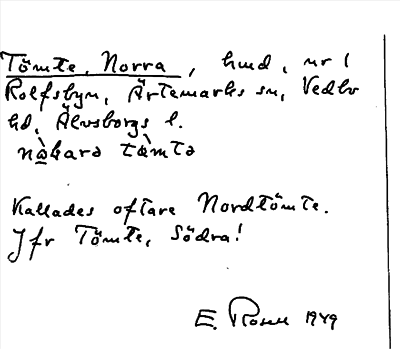 Tömte, Norra, hmd, nr 1
Rolfsbyn, Ärtemarks sn, Vedbo
hd, Älvsborgs l.
nə̀kara tæ̀mtə
Kallades oftare Nordtömte.
Jfr Tömte, Södra!
E. Rosell 1949